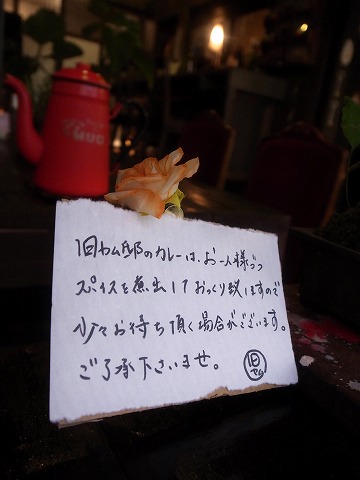 旧ヤム邸のカレーは、お一人様づつ
スパイスを煮出しておつくり致しますので
少々お待ち頂く場合がございます。
ご了承下さいませ。
旧
ヤム